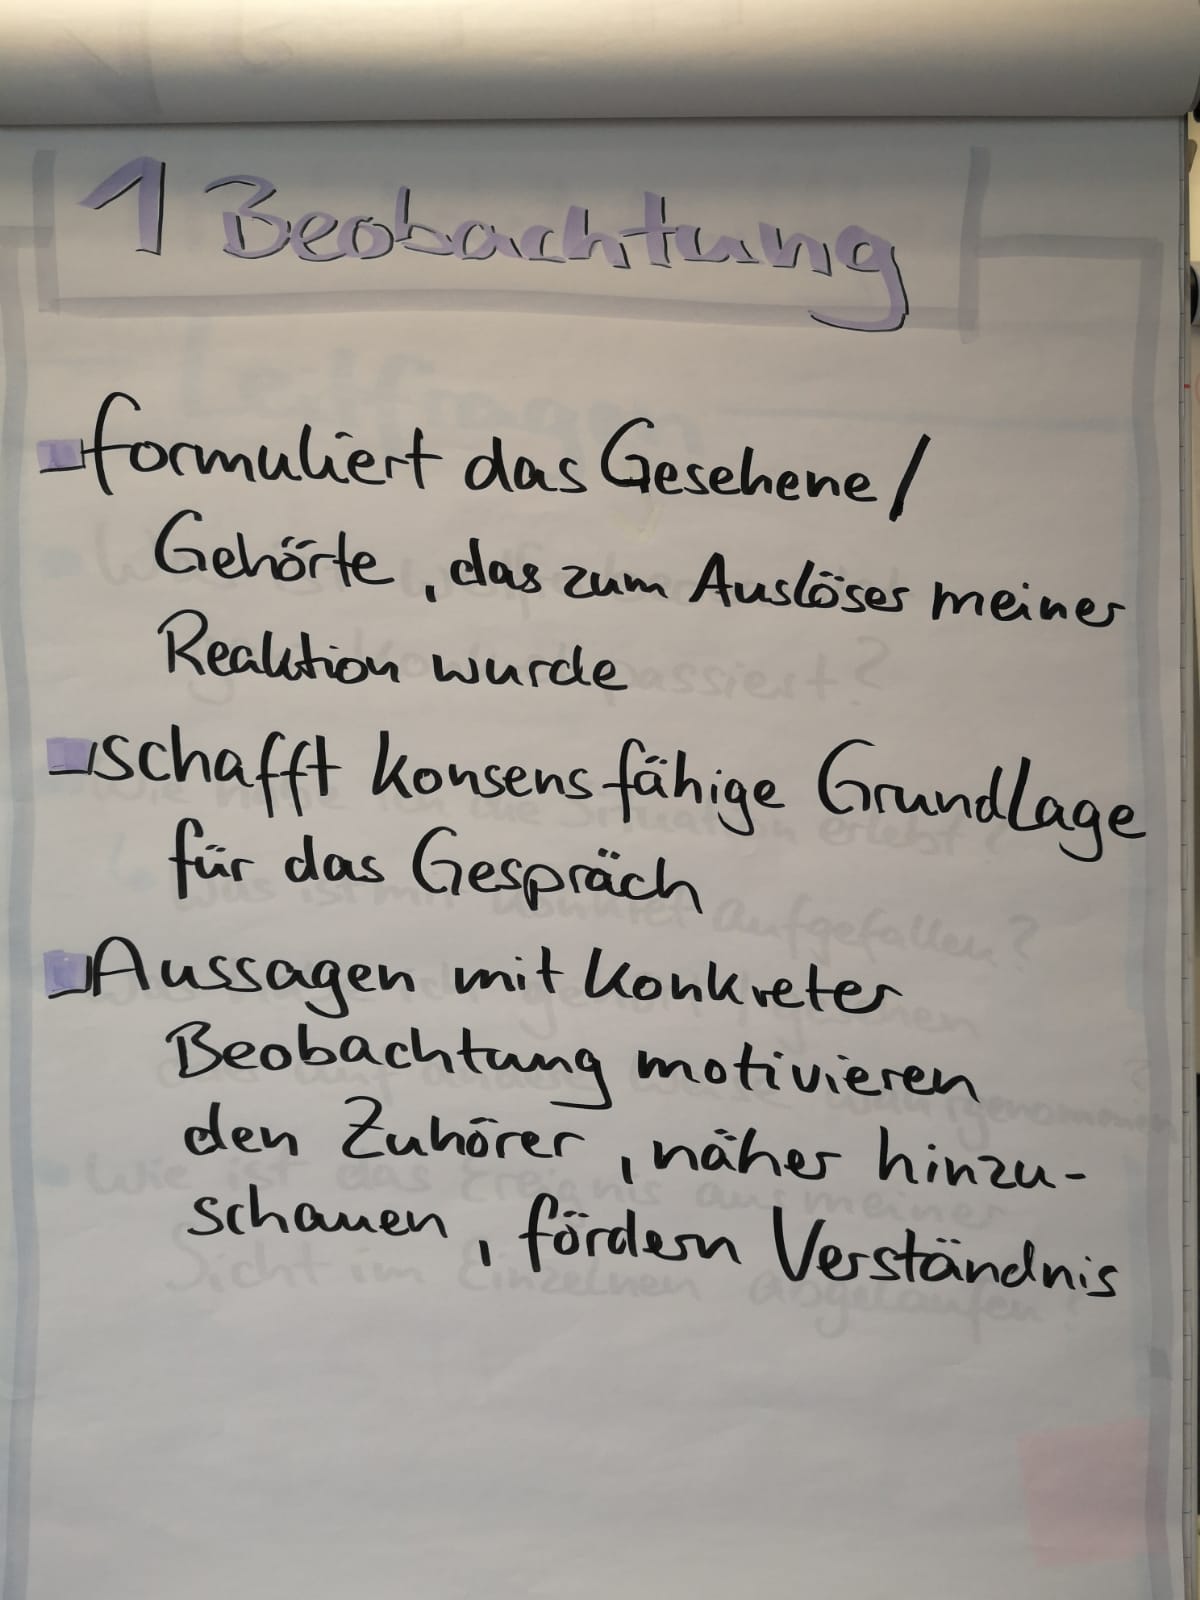 1 Beobachtung
formuliert das Gesehene/
Gehörte, das zum Auslöser meiner
Reaktion wurde
schafft konsensfähige Grundlage
für das Gespräch
Aussagen mit konkreter
Beobachtung motivieren
den Zuhörer, näher hinzu-
schauen, fördern Verständnis